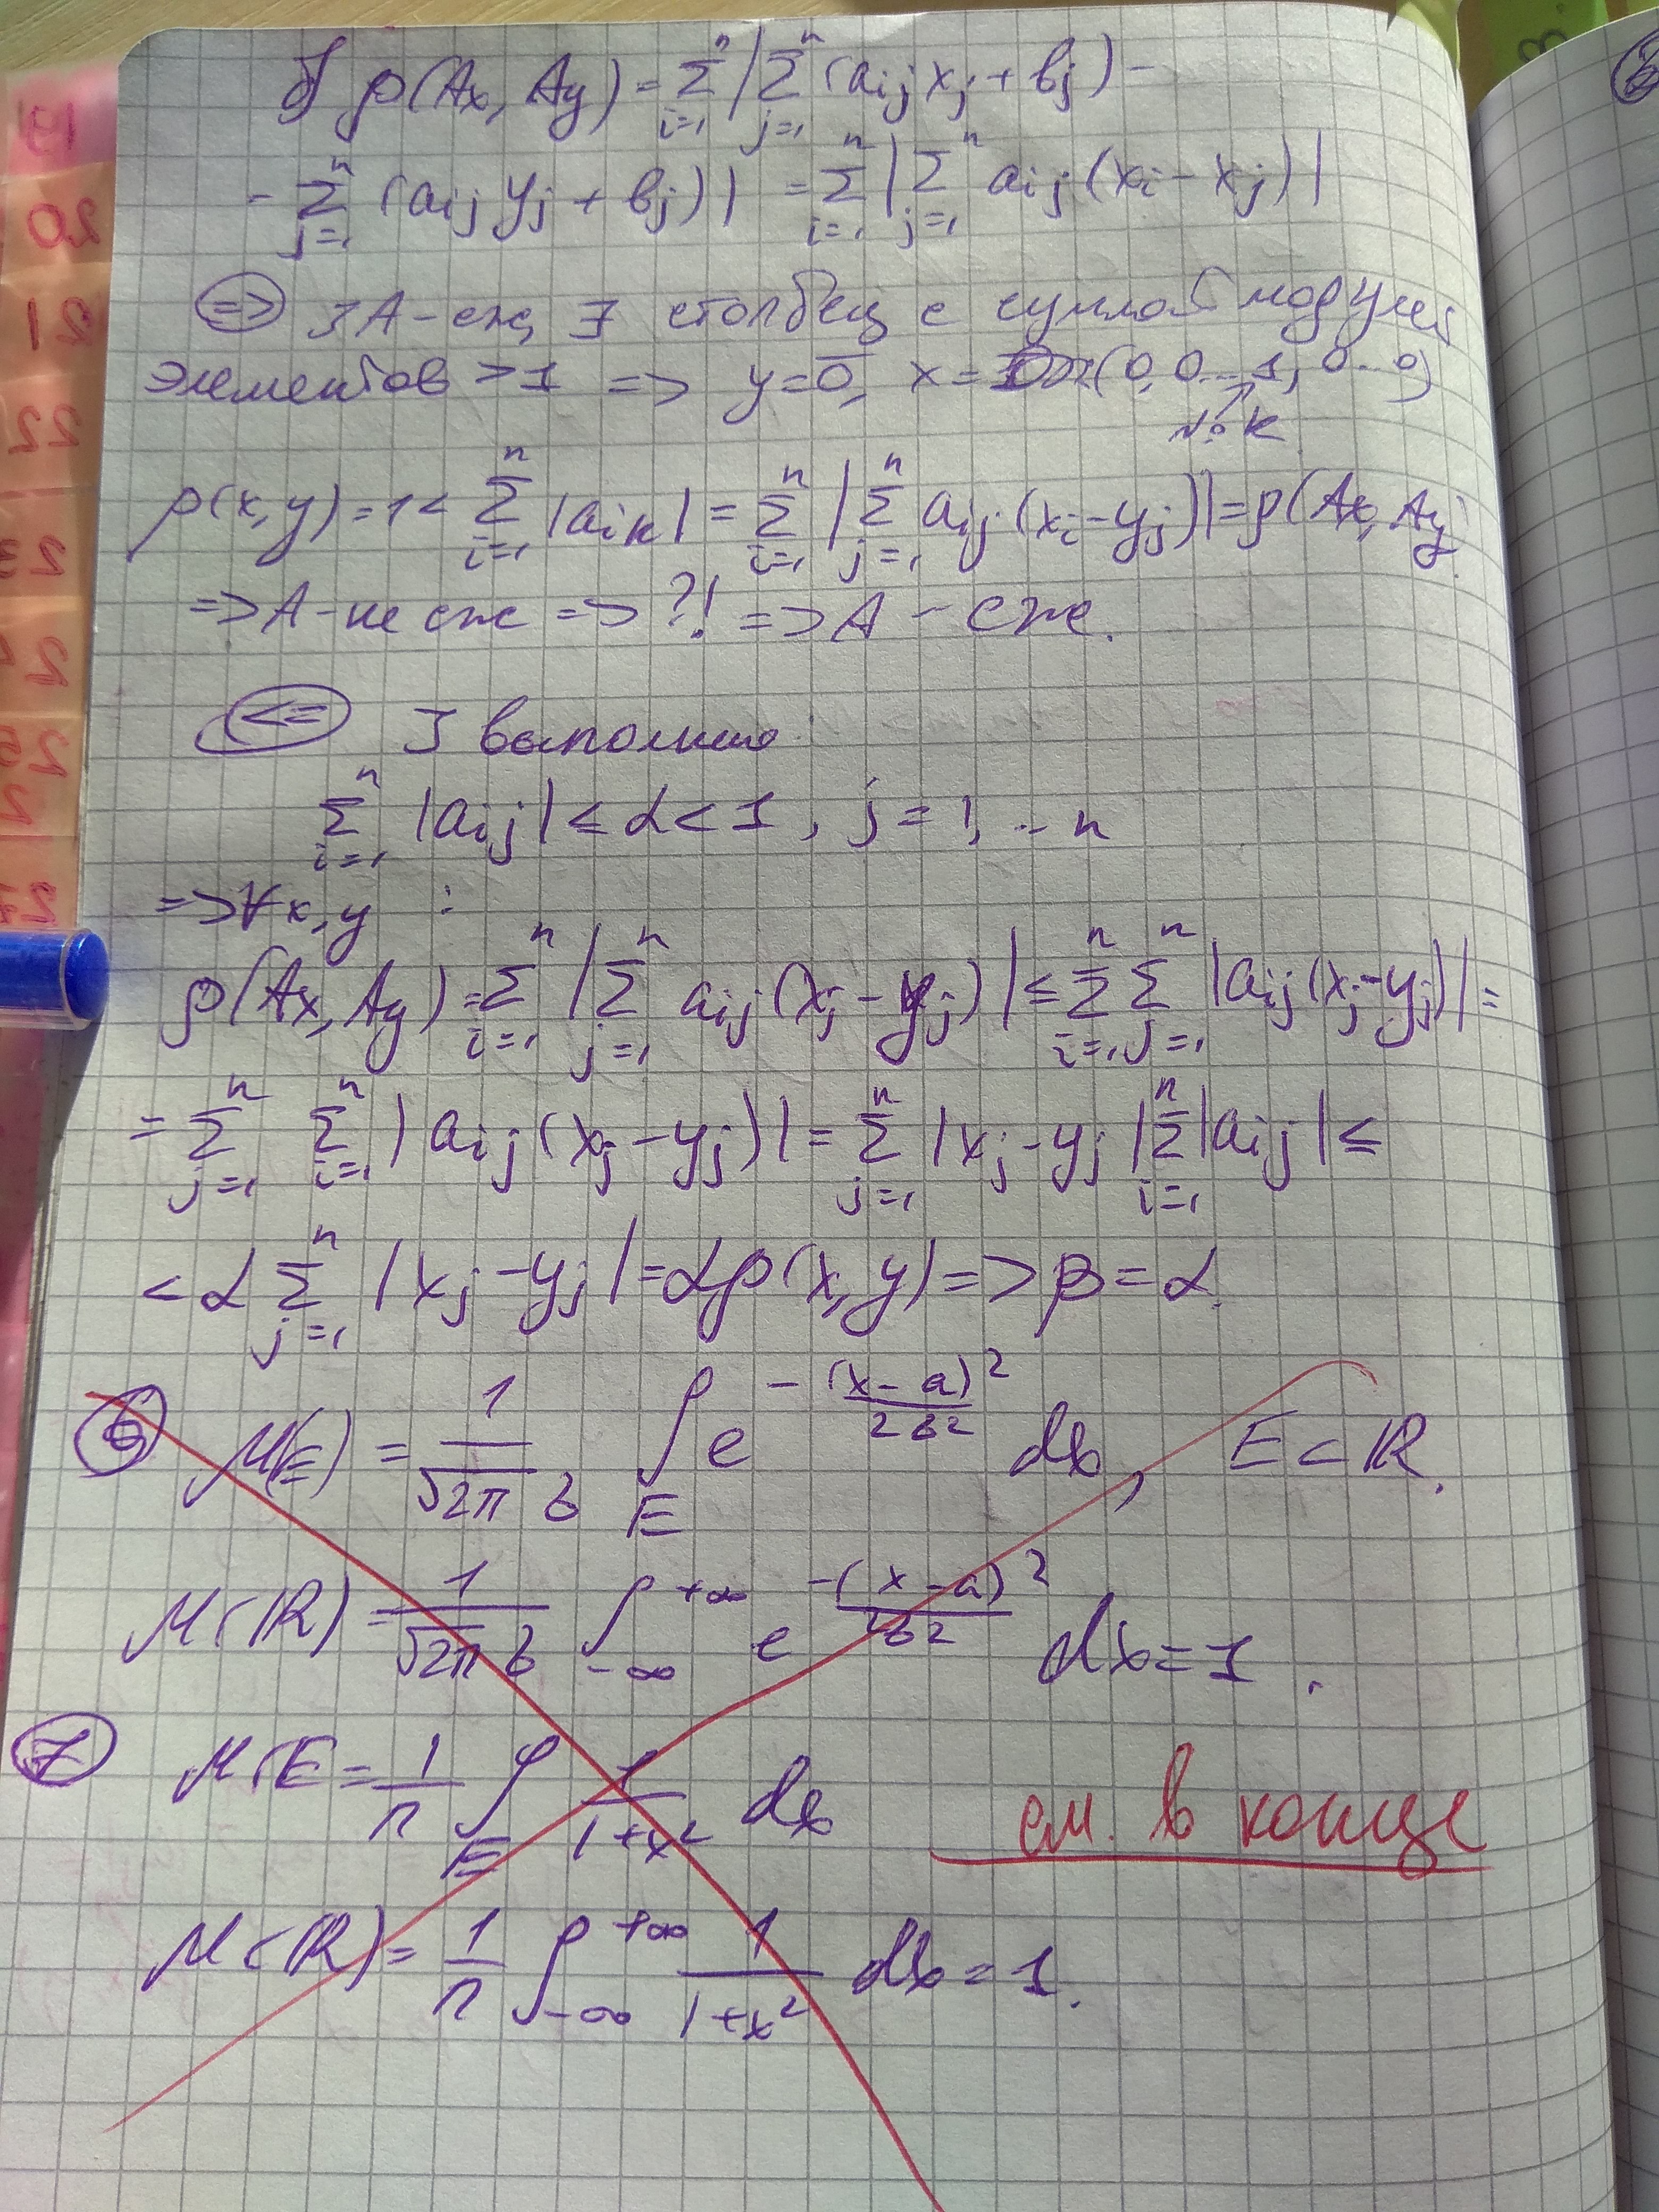 б) ρ(Ax, Ay) = Σ_{i=1}^{n} | Σ_{j=1}^{n} (a_{ij} x_j + b_j) -
- Σ_{j=1}^{n} (a_{ij} y_j + b_j) | = Σ_{i=1}^{n} | Σ_{j=1}^{n} a_{ij} (x_i - x_j) |
(=>) ] A - сж, ∃ столбец с суммой модулей
элементов > 1 => y = 0̄, x = (0, 0...1, 0..0)
№ k
ρ(x, y) = 1 < Σ_{i=1}^{n} |a_{ik}| = Σ_{i=1}^{n} | Σ_{j=1}^{n} a_{ij} (x_i - y_j) | = ρ(Ax, Ay)
=> A - не сж => ?! => A - сж.
(<=) ] выполнено:
Σ_{i=1}^{n} |a_{ij}| ≤ α < 1, j = 1, .. n
=> ∀ x, y :
ρ(Ax, Ay) = Σ_{i=1}^{n} | Σ_{j=1}^{n} a_{ij} (x_j - y_j) | ≤ Σ_{i=1}^{n} Σ_{j=1}^{n} |a_{ij} (x_j - y_j)| =
= Σ_{j=1}^{n} Σ_{i=1}^{n} | a_{ij} (x_j - y_j) | = Σ_{j=1}^{n} |x_j - y_j| Σ_{i=1}^{n} |a_{ij}| ≤
< α Σ_{j=1}^{n} |x_j - y_j| = αρ(x, y) => β = α.
(6) μ(E) = \frac{1}{√2π б} ∫_{E} e^{-\frac{(x-a)^2}{2б^2}} dx, E ⊂ ℝ.
μ(ℝ) = \frac{1}{√2π б} ∫_{-∞}^{+∞} e^{-\frac{(x-a)^2}{2б^2}} dx = 1.
(7) μ(E = \frac{1}{π} ∫_{E} \frac{1}{1+x^2} dx
см. в конце
μ(ℝ) = \frac{1}{π} ∫_{-∞}^{+∞} \frac{1}{1+x^2} dx = 1.
19
20
21
22
25
27